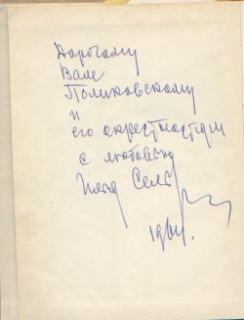 Дорогому
Вале
Поликовскому
и
его окрестностям
с любовью
1964.